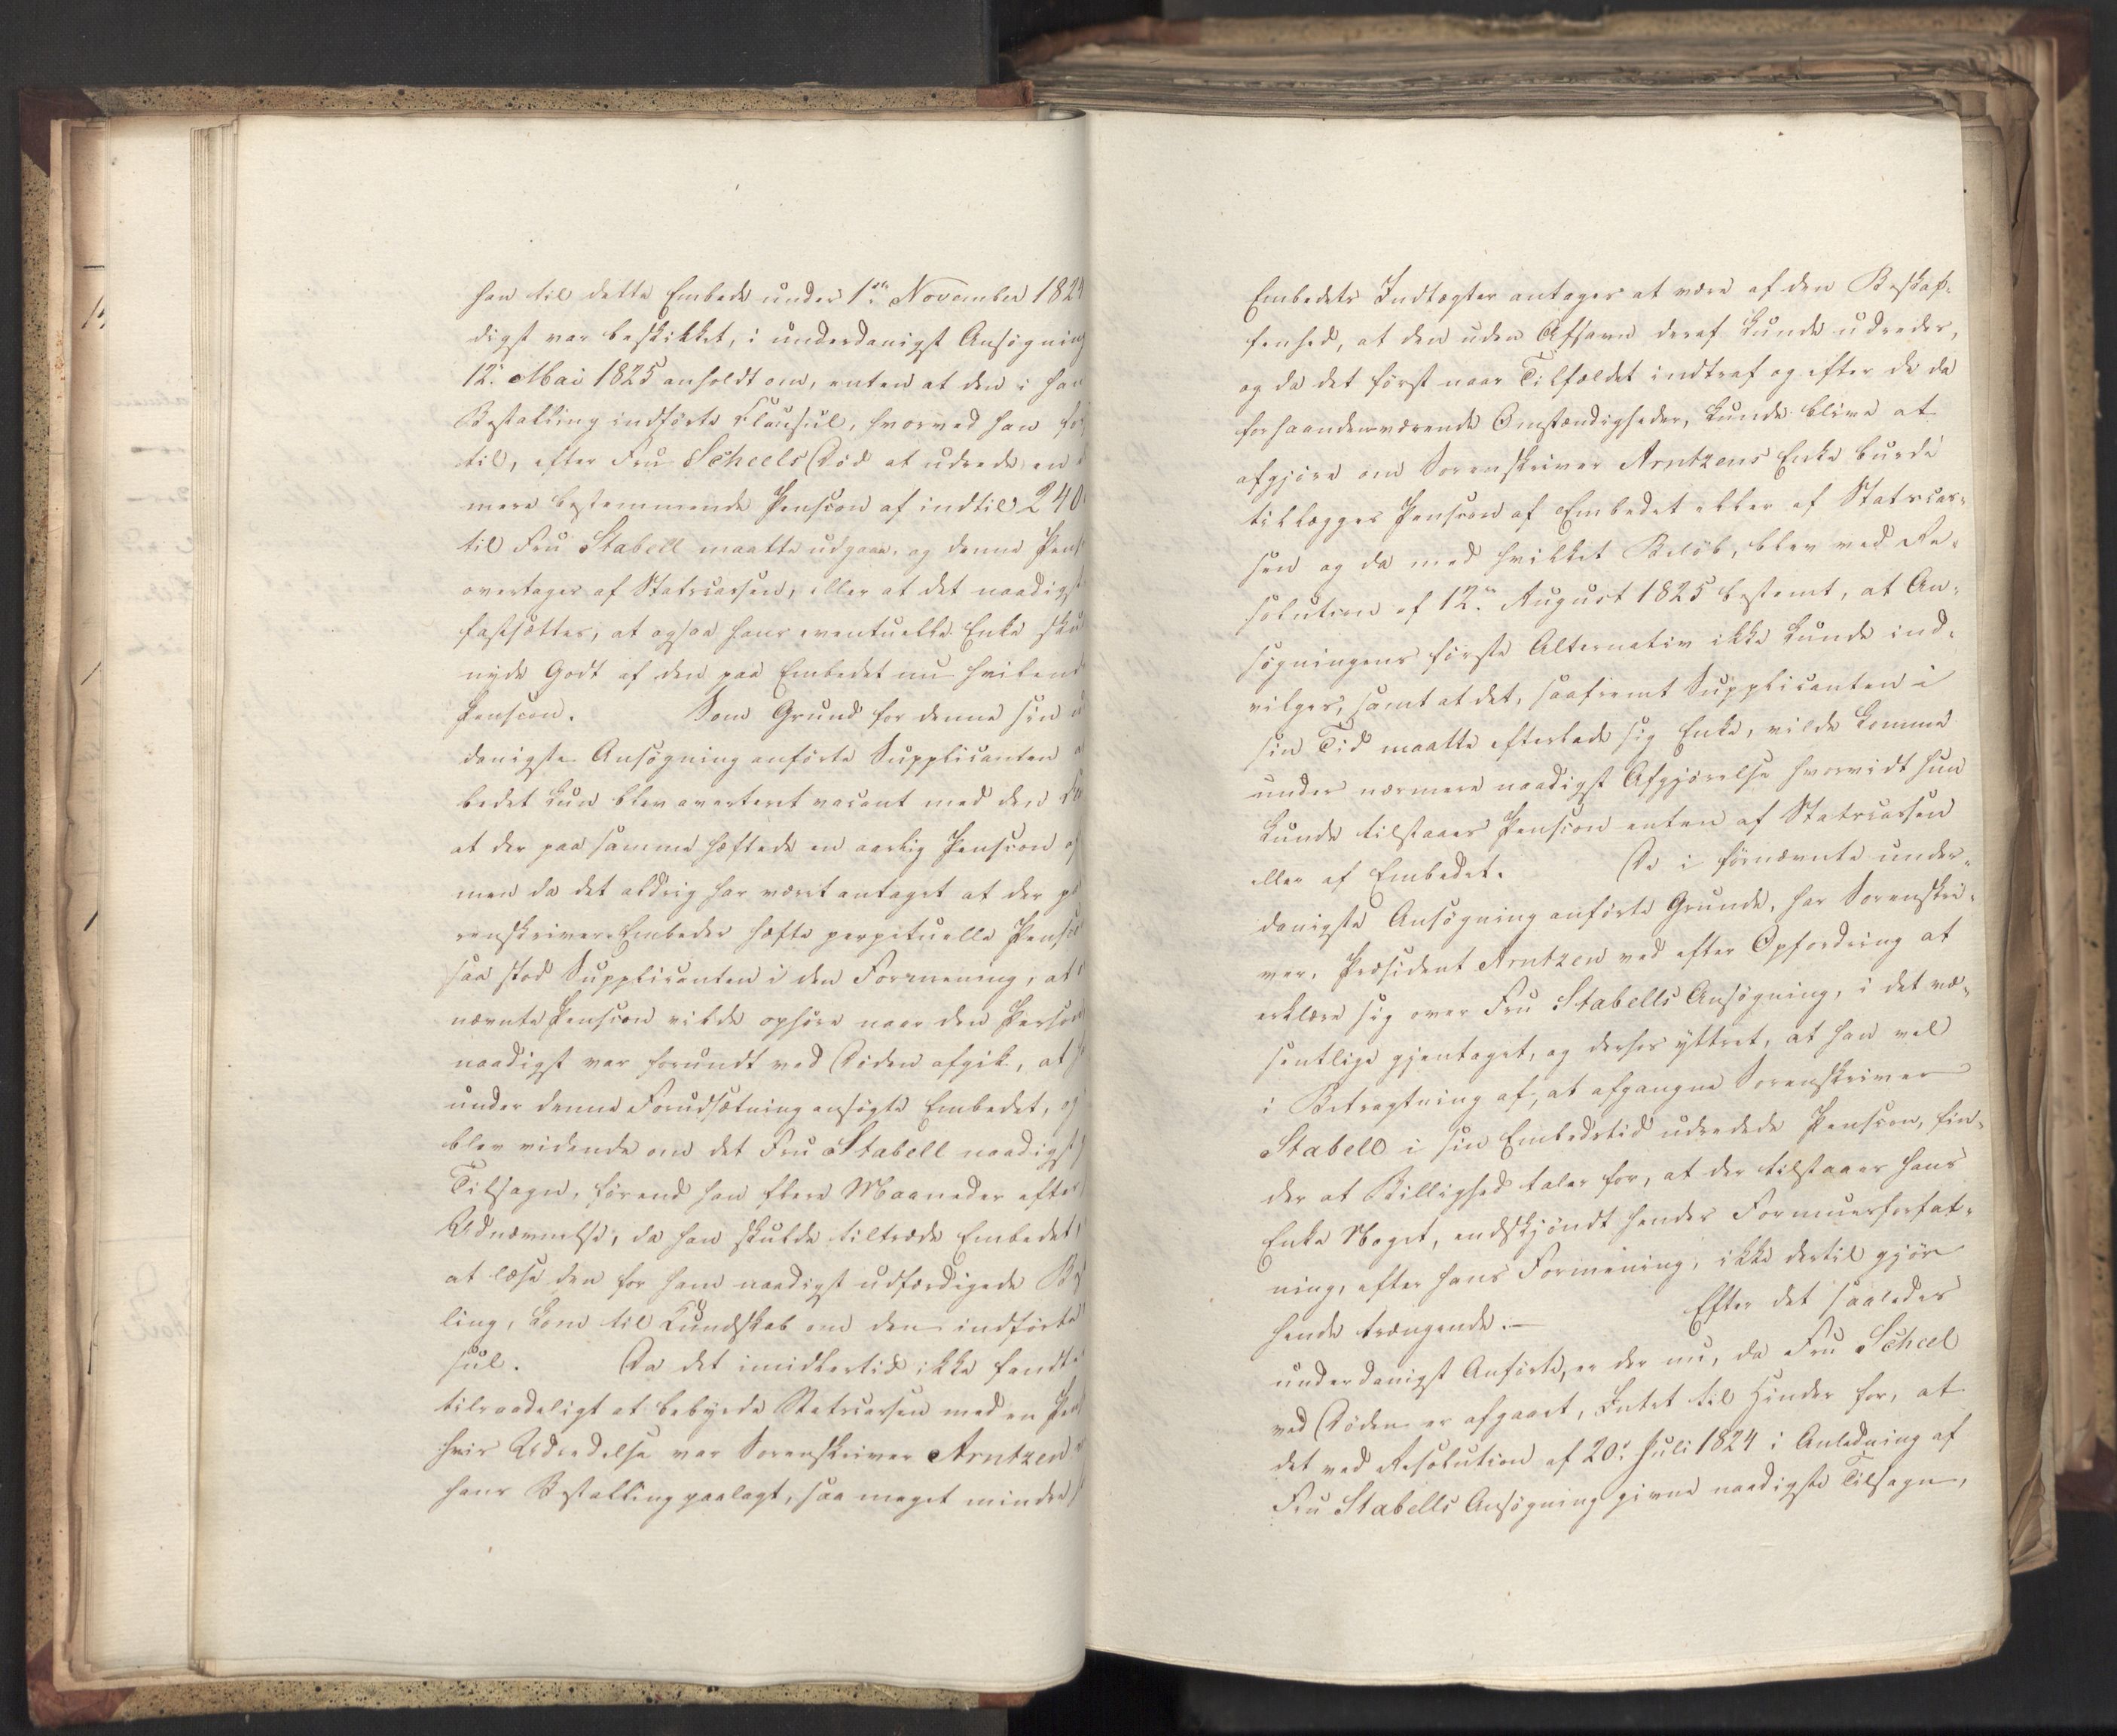 han til dette Embede under 1ste November 182
digst var beskikket, i underdanigst Ansøgning
12. Mai 1825 anholdt om, enten at den i han
Bestalling indførte Clausul, hvorved han
til, efter Fru Scheels Død at udrede en
mere bestemmende Pension af indtil 240
til Fru Stabell maatte udgaae, og denne Pens
overtages af Statscassen, eller at det naadigst
fastsættes, at ogsaa hans eventuelle Enke sku
nyde Godt af den paa Embedet nu hvilend
Pension. Som Grund for denne sin u
danigste Ansøgning anførte Supplicanten
bedet kun blev averteret vacant med den
at der paa samme hæftede en aarlig Pension
men da det aldrig har været antaget at der p
renskriver-Embeder hæfte perpetuelle Pensio
saa stod Supplicanten i den Formening, at
nævnte Pension vilde ophøre naar den Person
naadigst var forundt ved Døden afgik, at
under denne Forudsætning ansøgte Embedet, og
blev vidende om det Fru Stabell naadigst
Tilsagn, førend han flere Maaneder efter
Udnævnelse, da han skulde tiltræde Embedet,
at læse den for ham naadigst udfærdigede Be
ling, kom til Kundskab om den indførte
sul. Da det imidlertid ikke fandtes
tilraadeligt at bebyrde Statscassen med en Pen
hvis Udredelse var Sorenskriver Arntzen
hans Bestalling paalagt, saa meget mindre s
Embedets Indtægter antages at være af den Beskaf-
fenhed, at den uden Afsavn deraf kunde udredes,
og da det først naar Tilfældet indtraf og efter de da
forhaandenværende Omstændigheder, kunde blive at
afgjøre om Sorenskriver Arntzens Enke burde
tillægges Pension af Embedet eller af Statscas-
sen og da med hvilket Beløb, blev ved Re-
solution af 12te August 1825 bestemt, at An-
søgningens første Alternativ ikke kunde ind-
vilges, samt at det, saafremt Supplicanten i
sin Tid maatte efterlade sig Enke, vilde komme
under nærmere naadigst Afgjørelse hvorvidt hun
kunde tilstaaes Pension enten af Statscassen
eller af Embedet. De i førnævnte under-
danigste Ansøgning anførte Grunde, har Sorenskri-
ver, Præsident Arntzen ved efter Opfordring at
erklære sig over Fru Stabells Ansøgning, i det væ-
sentlige gjentaget, og derhos yttret, at han vel
i Betragtning af, at afgangne Sorenskriver
Stabell i sin Embedstid udredede Pension, fin-
der at Billighed taler for, at der tilstaaes hans
Enke Noget, endskjøndt hendes Formuesforfat-
ning, efter hans Formening, ikke dertil gjør
hende trængende.— Efter det saaledes
underdanigst Anførte, er der nu, da Fru Scheel
ved Døden er afgaaet, Intet til Hinder for, at
det ved Resolution af 20. Juli 1824 i Anledning af
Fru Stabells Ansøgning givne naadigste Tilsagn,